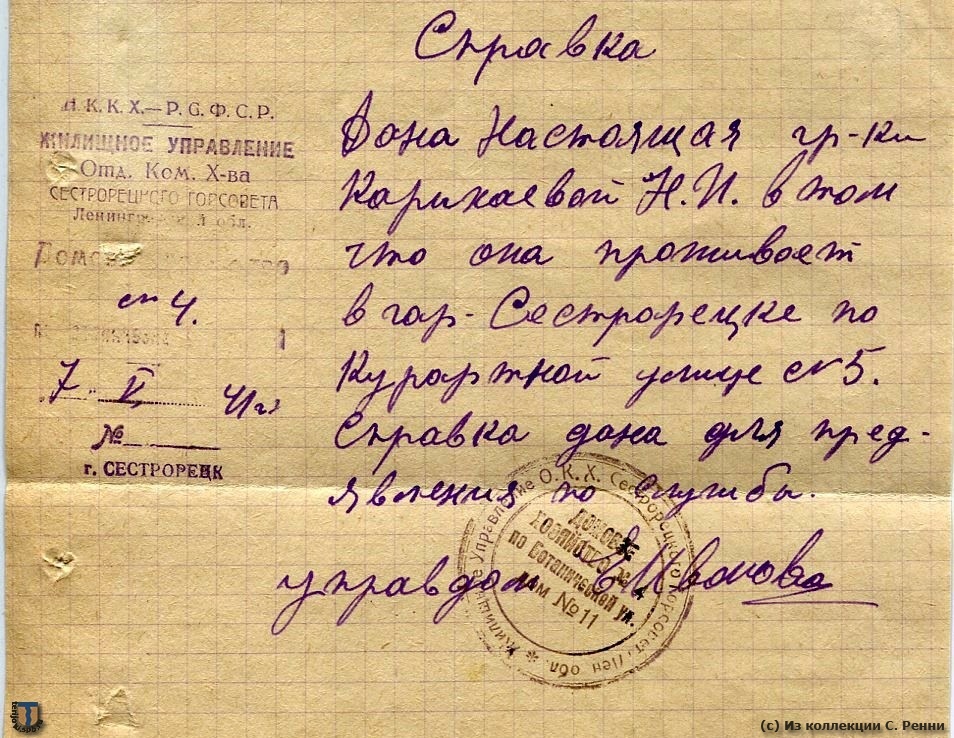 Справка
Н.К.К.Х.—Р.С.Ф.С.Р.
ЖИЛИЩНОЕ УПРАВЛЕНИЕ
Отд. Ком. Х-ва
СЕСТРОРЕЦКОГО ГОРСОВЕТА
обл.
№ 4.
7 V 41 г.
№
г. СЕСТРОРЕЦК
Дана Настоящая гр-ки
Н. И. в том
что она проживает
в гор- Сестрорецке по
Курортной улице № 5.
Справка дана для пред-
явления по службы.
управдом Иванова
Жилищное Управление О.К.Х. Сестрорецкого Горсовет. Лен обл.
ДОМОВОЕ
ХОЗЯЙСТВО № 4
по Ботанической ул.
дом № 11
terijoki.spb.ru
(с) Из коллекции С. Ренни